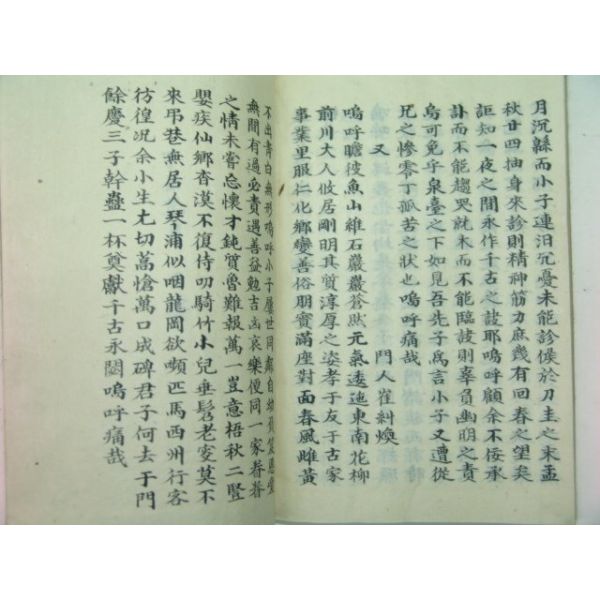 月沉緜而小子連汨冗憂未能診候於刀圭之末孟
秋廿四抽身來診則精神筋力庶幾有回春之望矣
詎知一夜之間永作千古之訣耶嗚呼顧余不侫承
訃而不能趨哭就木而不能臨訣則辜負幽明之責
烏可免乎泉臺之下如見吾先子爲言小子又遭從
兄之慘零丁孤苦之狀也嗚呼痛哉
又 門人崔斜煥
嗚呼瞻彼魚山維石巖巖蒼然元氣逶迤東南花柳
前川大人攸居剛明其質淳厚之姿孝于友于古家
事業里服仁化鄉變善俗朋賓滿座對面春風雌黃
不出青白無形嗚呼小子屢世同鄰自幼
無間有過必責遇善益勉吉凶哀樂便同一家眷眷
之情未嘗忘懷才鈍質魯難報萬一豈意梧秋二豎
嬰疾仙鄉杳漠不復侍叨騎竹小兒垂髫老叟莫不
來吊巷無居人琴浦似咽龍岡欲頫匹馬西州行客
彷徨况余小生尤切蒿愴萬口成碑君子何去于門
餘慶三子幹蠱一杯奠獻千古永闋嗚呼痛哉